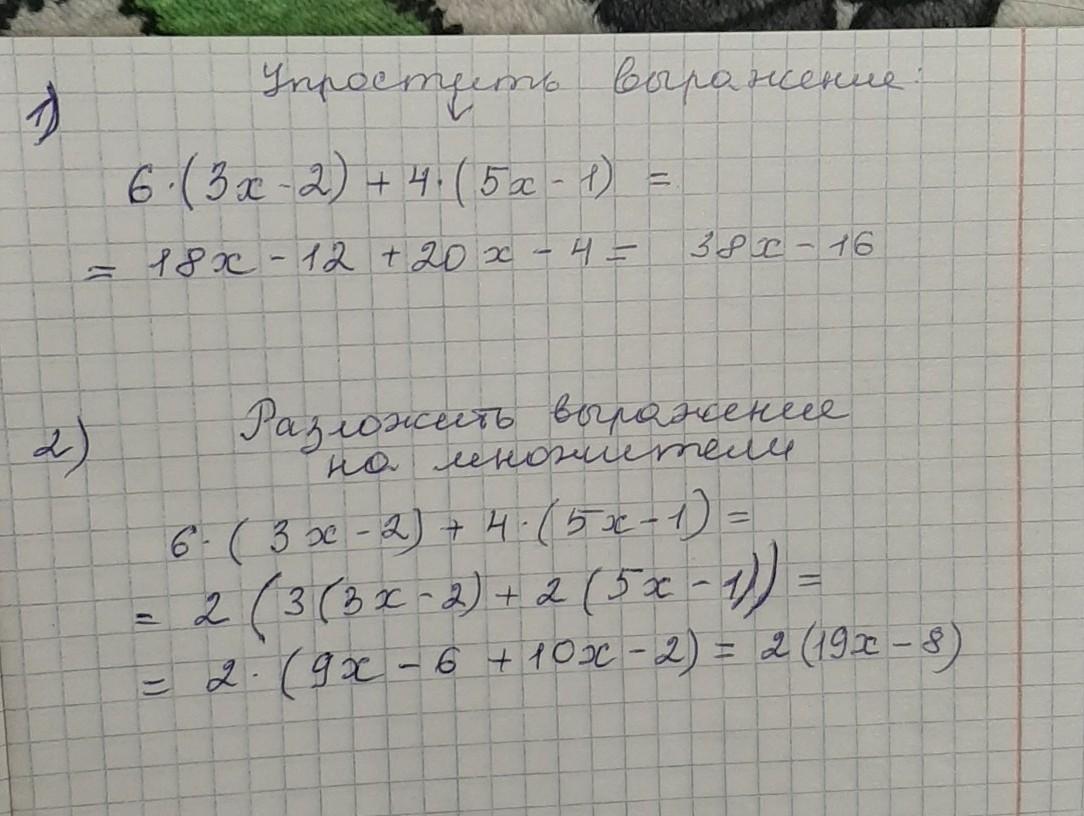 1) Упростить выражение:
6·(3x-2)+4·(5x-1) =
= 18x-12+20x-4= 38x-16
2) Разложить выражение
на множители
6·(3x-2)+4·(5x-1)=
= 2(3(3x-2)+2(5x-1))=
= 2·(9x-6+10x-2)=2(19x-8)